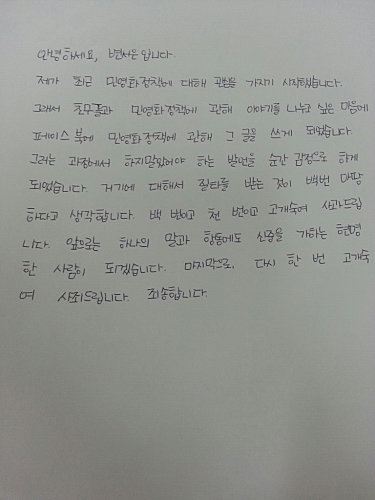 안녕하세요, 변서은 입니다.
저가 최근 민영화정책에 대해 관심을 가지기 시작했습니다.
그래서 친구들과 민영화정책에 관해 이야기를 나누고 싶은 마음에
페이스북에 민영화정책에 관해 그 글을 쓰게 되었습니다.
그러는 과정에서 하지말았어야 하는 발언을 순간 감정으로 하게
되었습니다. 거기에 대해서 질타를 받는 것이 백번 마땅
하다고 생각합니다. 백 번이고 천 번이고 고개숙여 사과드립
니다. 앞으로는 하나의 말과 행동에도 신중을 가하는 현명
한 사람이 되겠습니다. 마지막으로, 다시 한 번 고개숙
여 사죄드립니다. 죄송합니다.